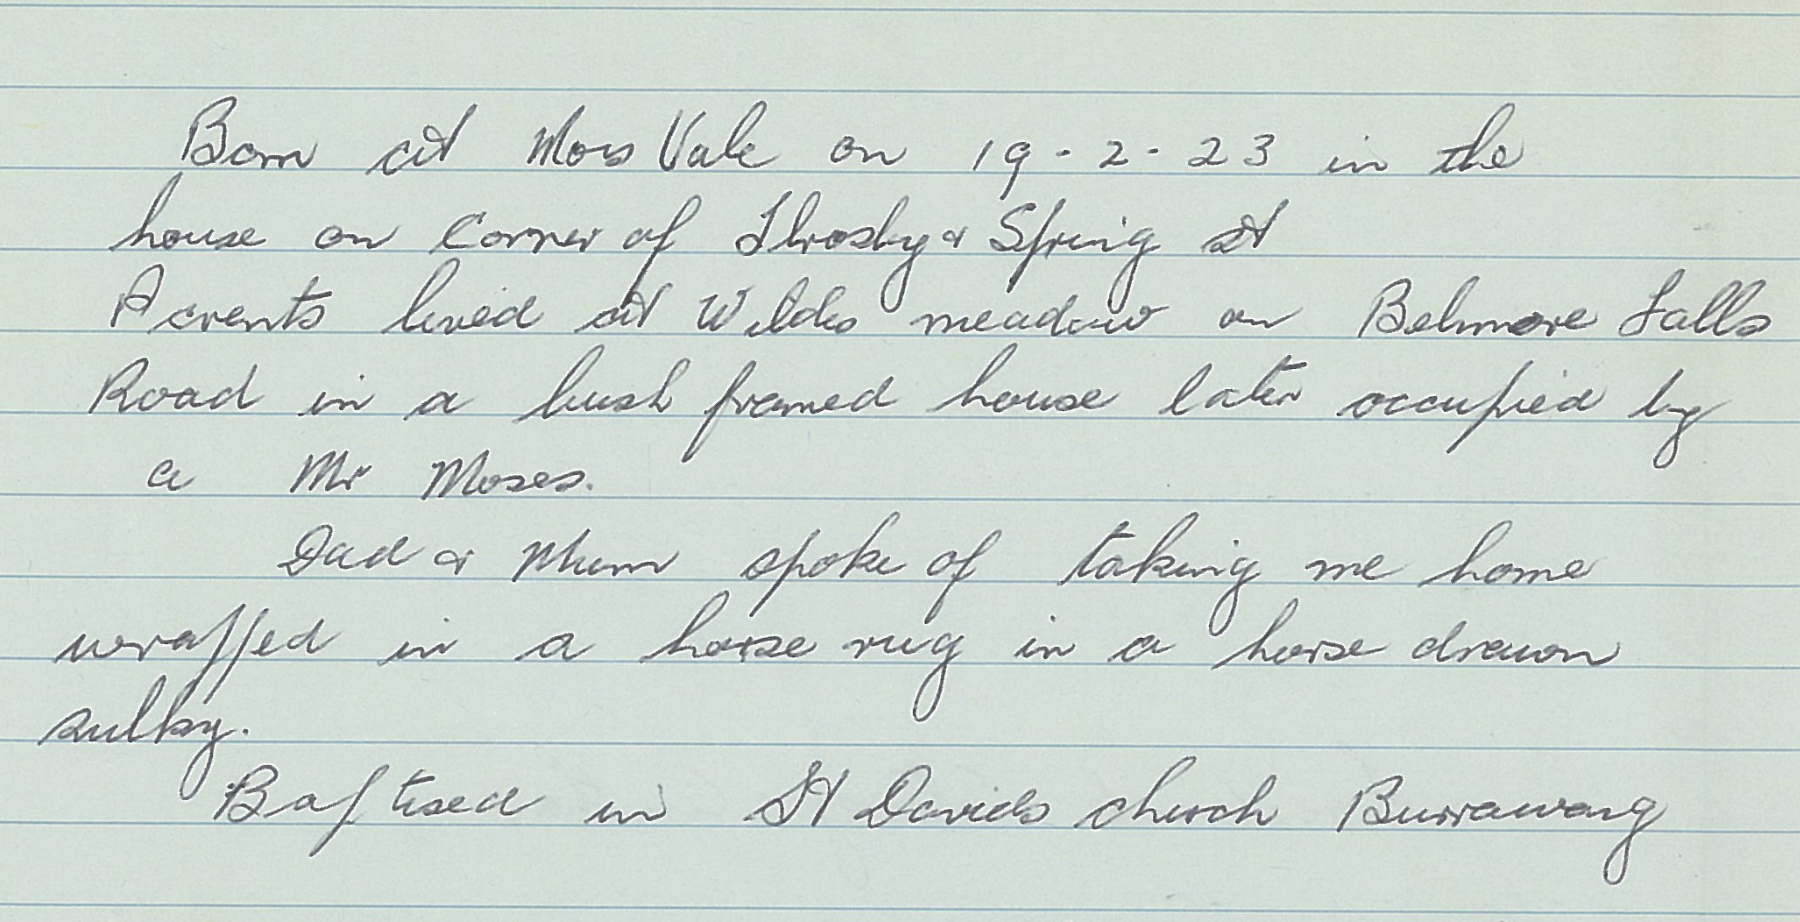 Born at Moss Vale on 19-2-23 in the
house on Corner of Throsby & Spring St
Parents lived at Wildes meadow on Belmore Falls
Road in a bush framed house later occupied by
a Mr Moses.
Dad & Mum spoke of taking me home
wrapped in a horse rug in a horse drawn
sulky.
Baptised in St Davids church Burrawang